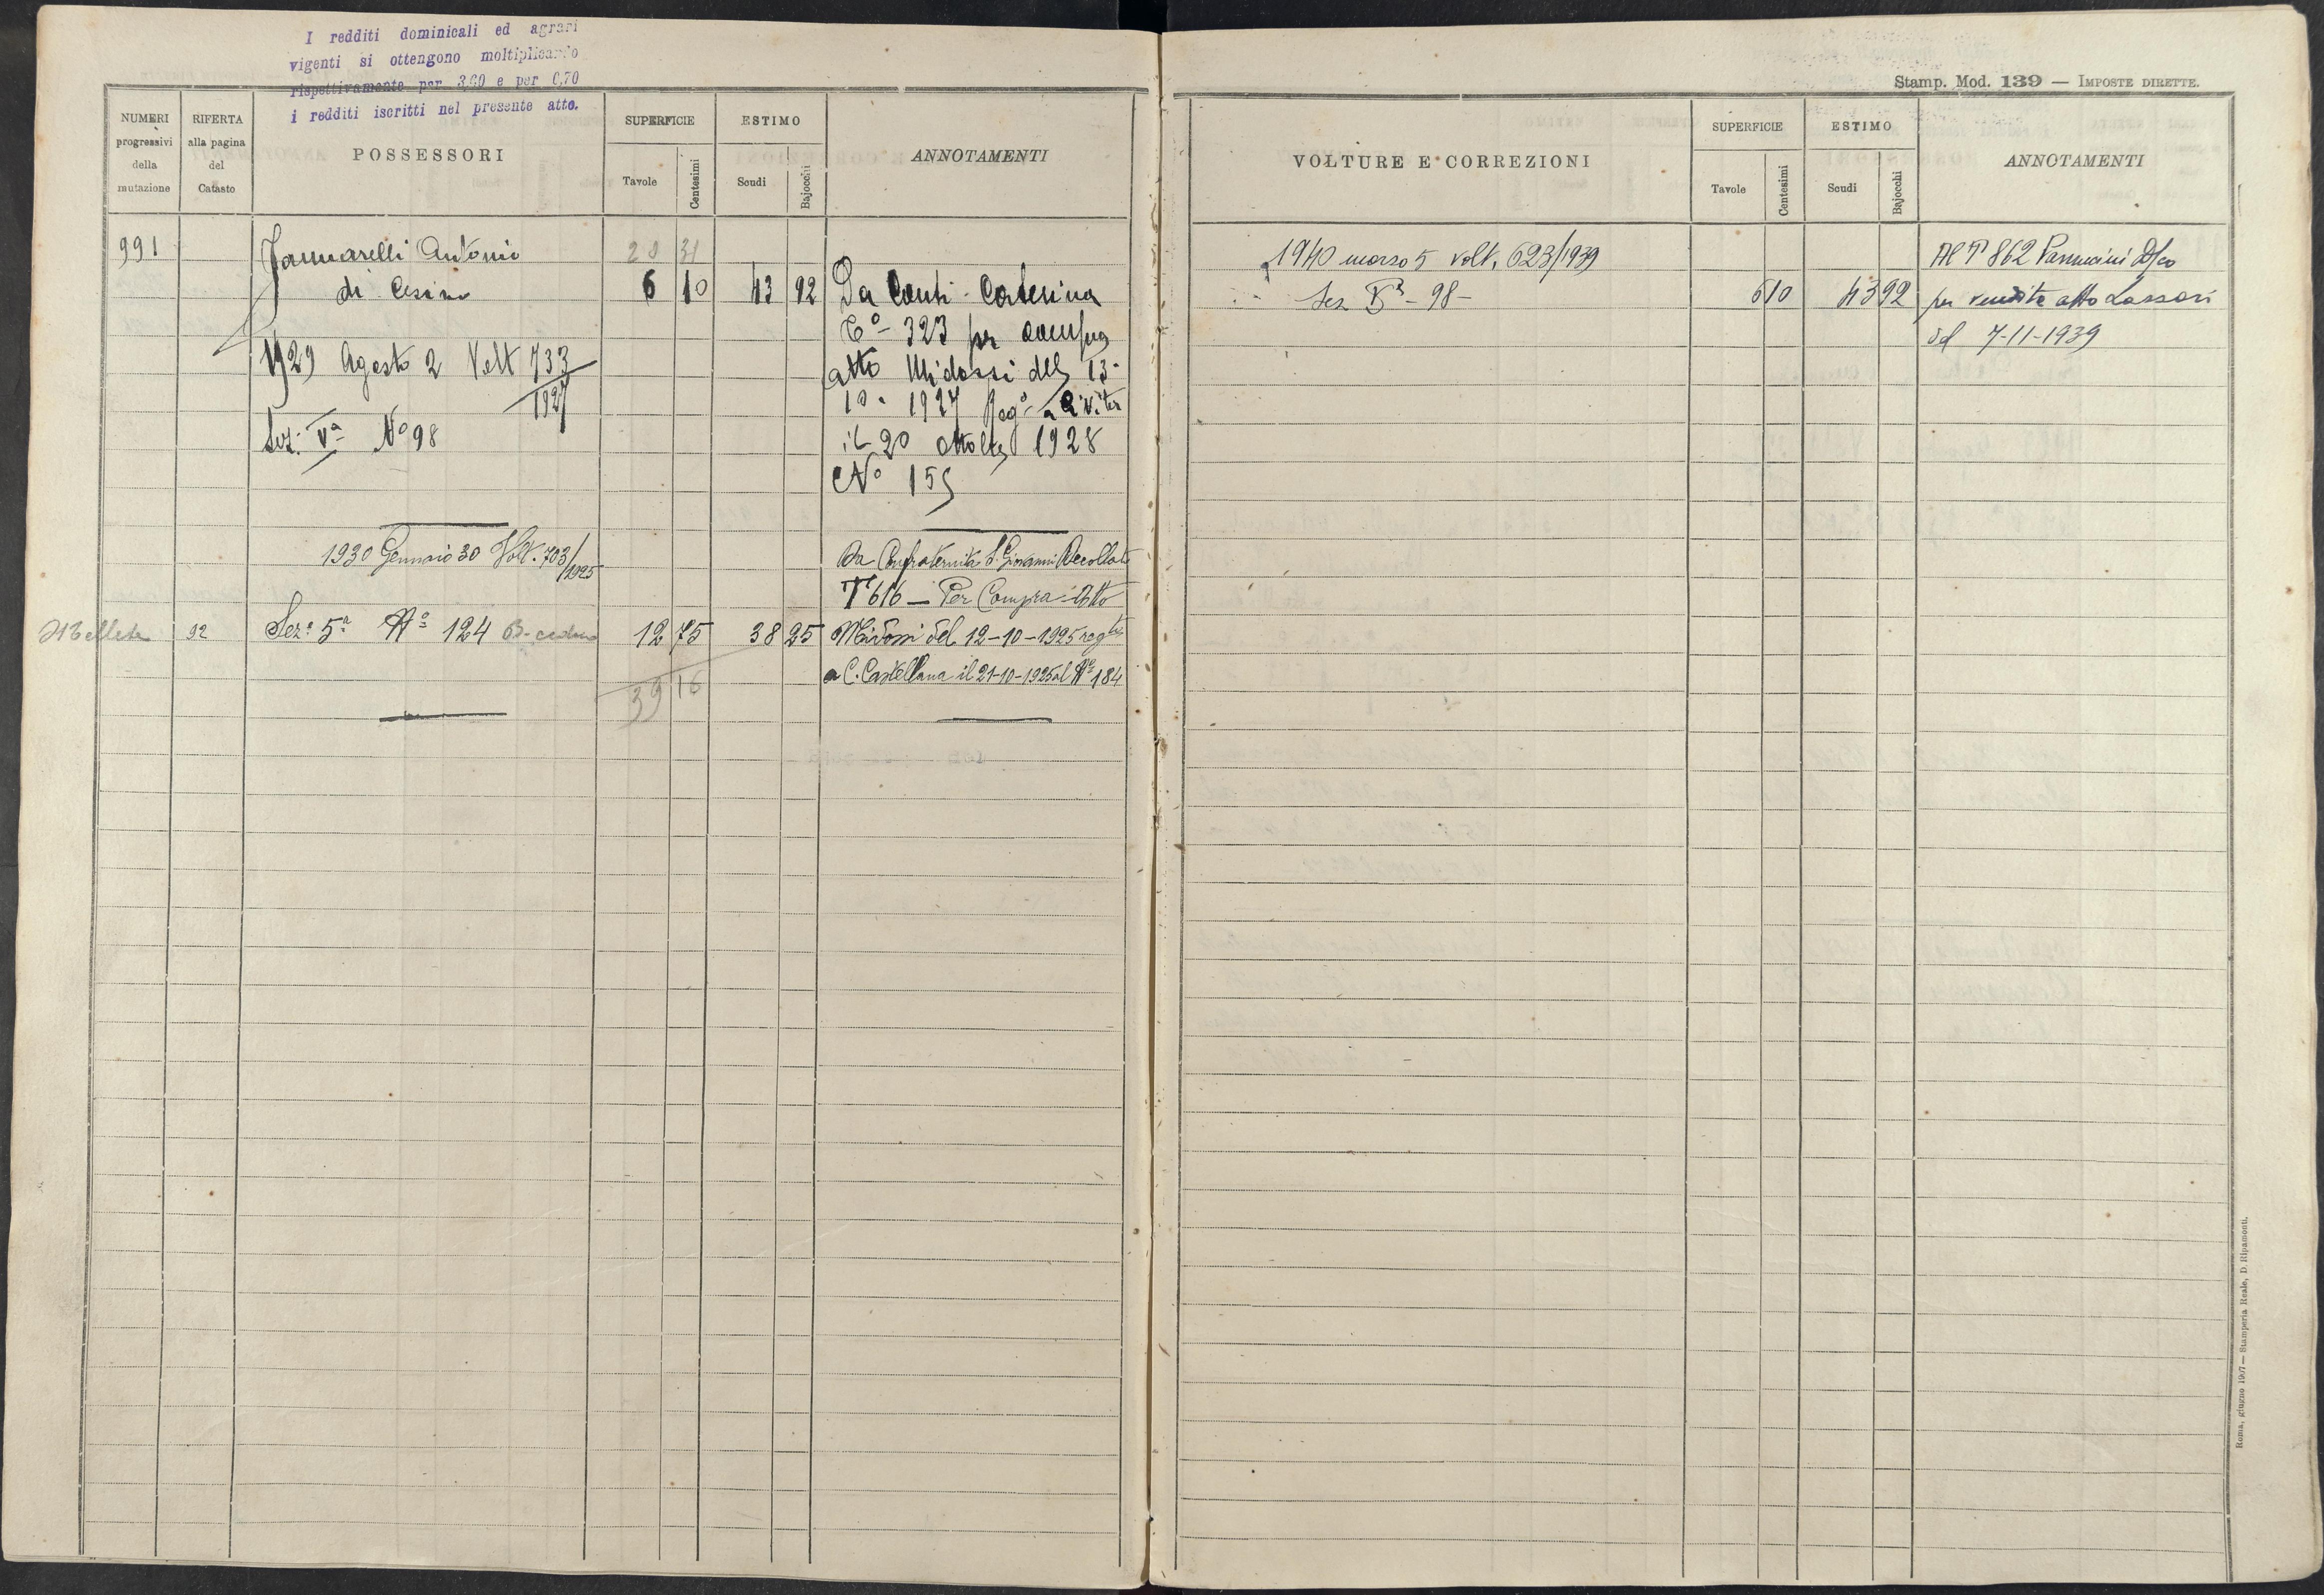 I redditi dominicali ed agrari
vigenti si ottengono moltiplicando
rispettivamente per 3,60 e per 0,70
i redditi iscritti nel presente atto.
NUMERI
progressivi
della
mutazione
RIFERTA
alla pagina
del
Catasto
POSSESSORI
SUPERFICIE
Tavole
Centesimi
ESTIMO
Scudi
Bajocchi
ANNOTAMENTI
991
Jannarelli Antonio
20 31
di
6 10 43 92
Da Conti Caterina
Cº 323 per compra
1929 Agosto 2 Volt 733/1927
atto Midossi del 13-
10- 1927 Regº a
Sez. Vª Nº 98
il 20 ottobre 1928
Nº 155
1930 Gennaio 30 Volt. 703/1925
Da Confraternita S. Giovanni Decollato
Tº 616 — Per Compra - Atto
92
Sez.e 5ª Nº 124 B. ceduo
12 75 38 25
Midossi del 12-10-1925 regto
39 16
a C. Castellana il 21-10-1925 al Nº 184
Stamp. Mod. 139 — IMPOSTE DIRETTE.
VOLTURE E CORREZIONI
SUPERFICIE
Tavole
Centesimi
ESTIMO
Scudi
Bajocchi
ANNOTAMENTI
1940 marzo 5 volt. 623/1939
Al Tº 862
Sez Vª - 98 -
6 10 43 92
per vendita atto Lazzari
del 7-11-1939
Roma, giugno 1907 — Stamperia Reale, D. Ripamonti.